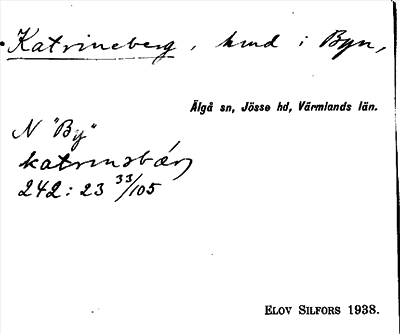 Katrineberg, hmd i Byn,
Älgå sn, Jösse hd, Värmlands län.
N "By"
katrinsbärj
242:23 33/105
ELOV SILFORS 1938.